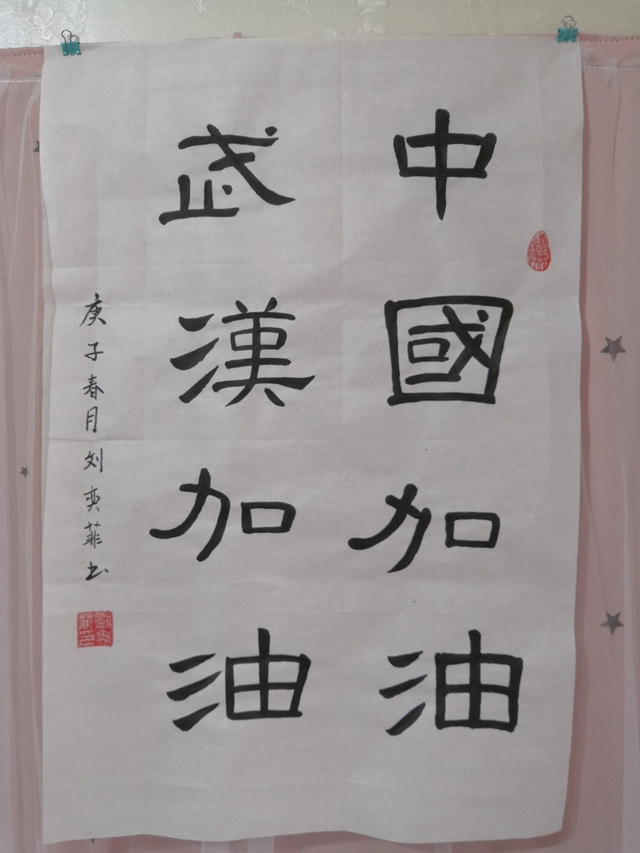 中國加油
武漢加油
庚子春月刘奕菲书